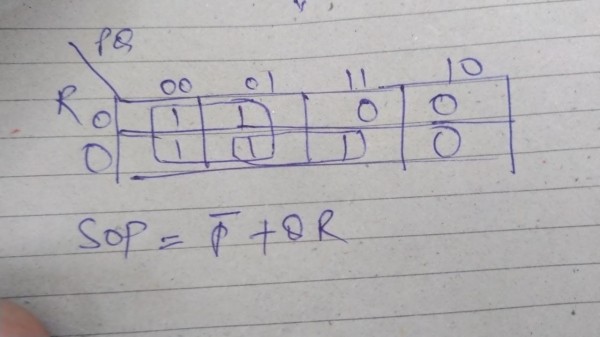 PQ
00 01 11 10
R 0 1 1 0 0
0 1 1 1 0
SOP = P̅ + QR